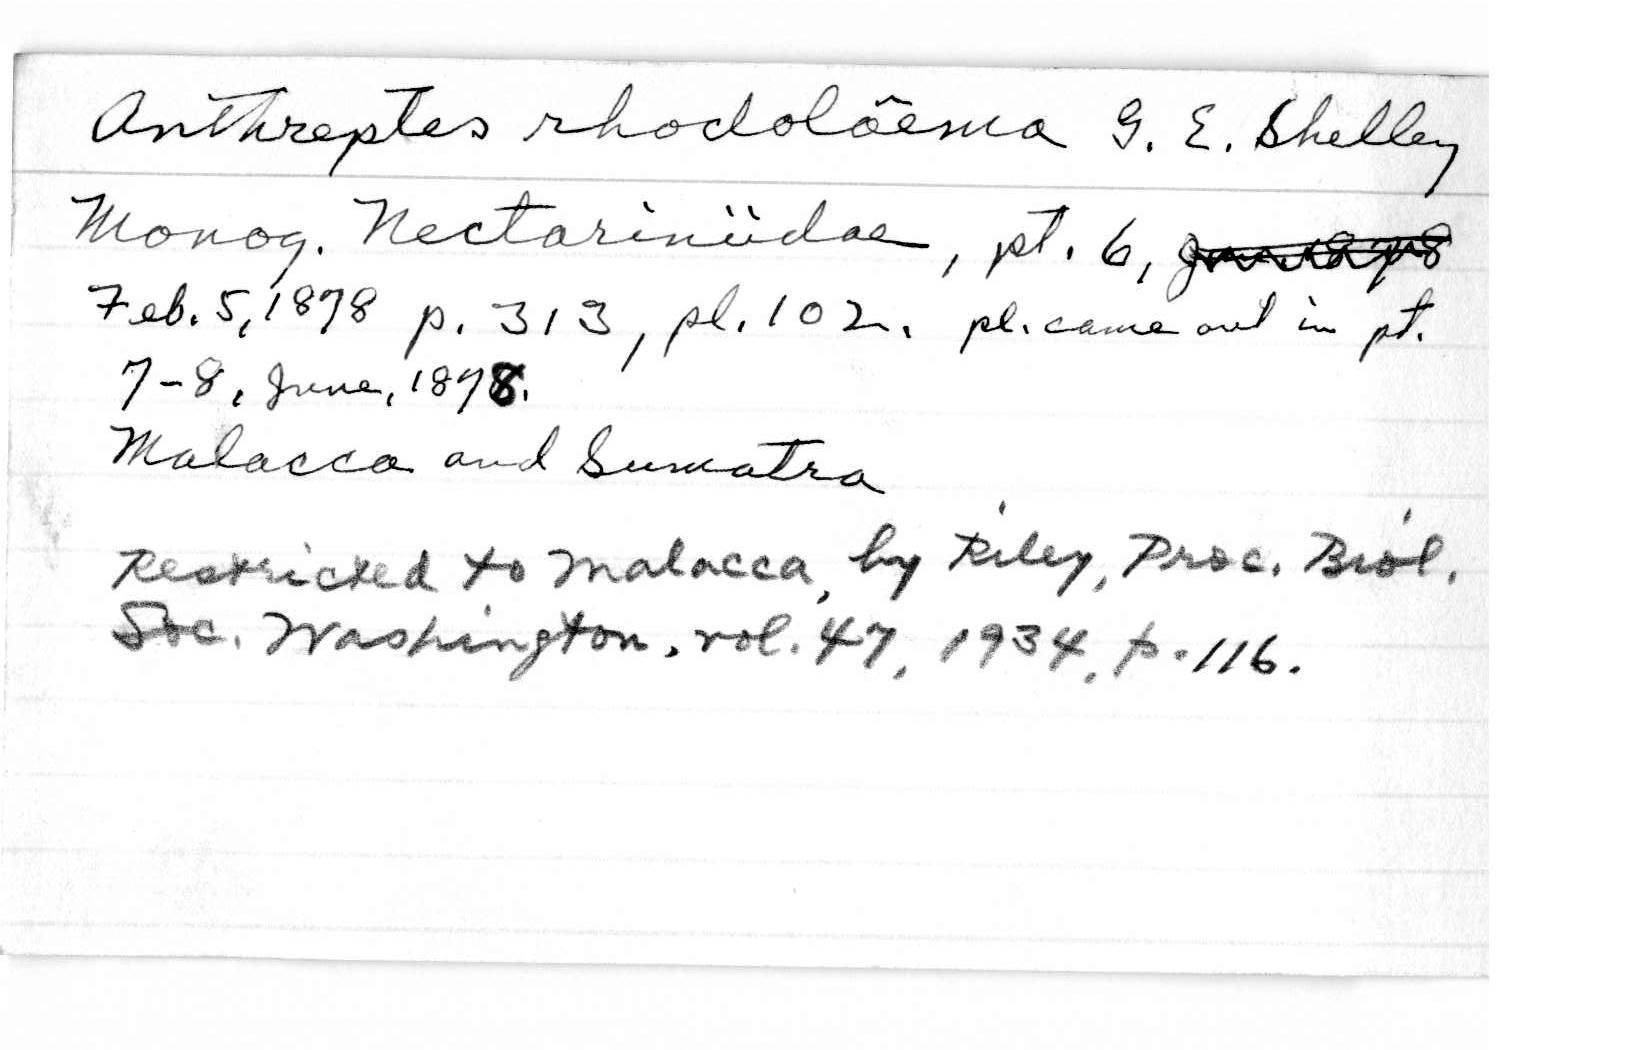 Anthreptes rhodolâema G. E. Shelley
Monog. Nectariniidae, pt. 6,
Feb. 5, 1878 p. 313, pl. 102. pl. came out in pt.
7-8, June, 1878.
Malacca and Sumatra
Restricted to Malacca, by Riley, Proc. Biol.
Soc. Washington, vol. 47, 1934, p. 116.